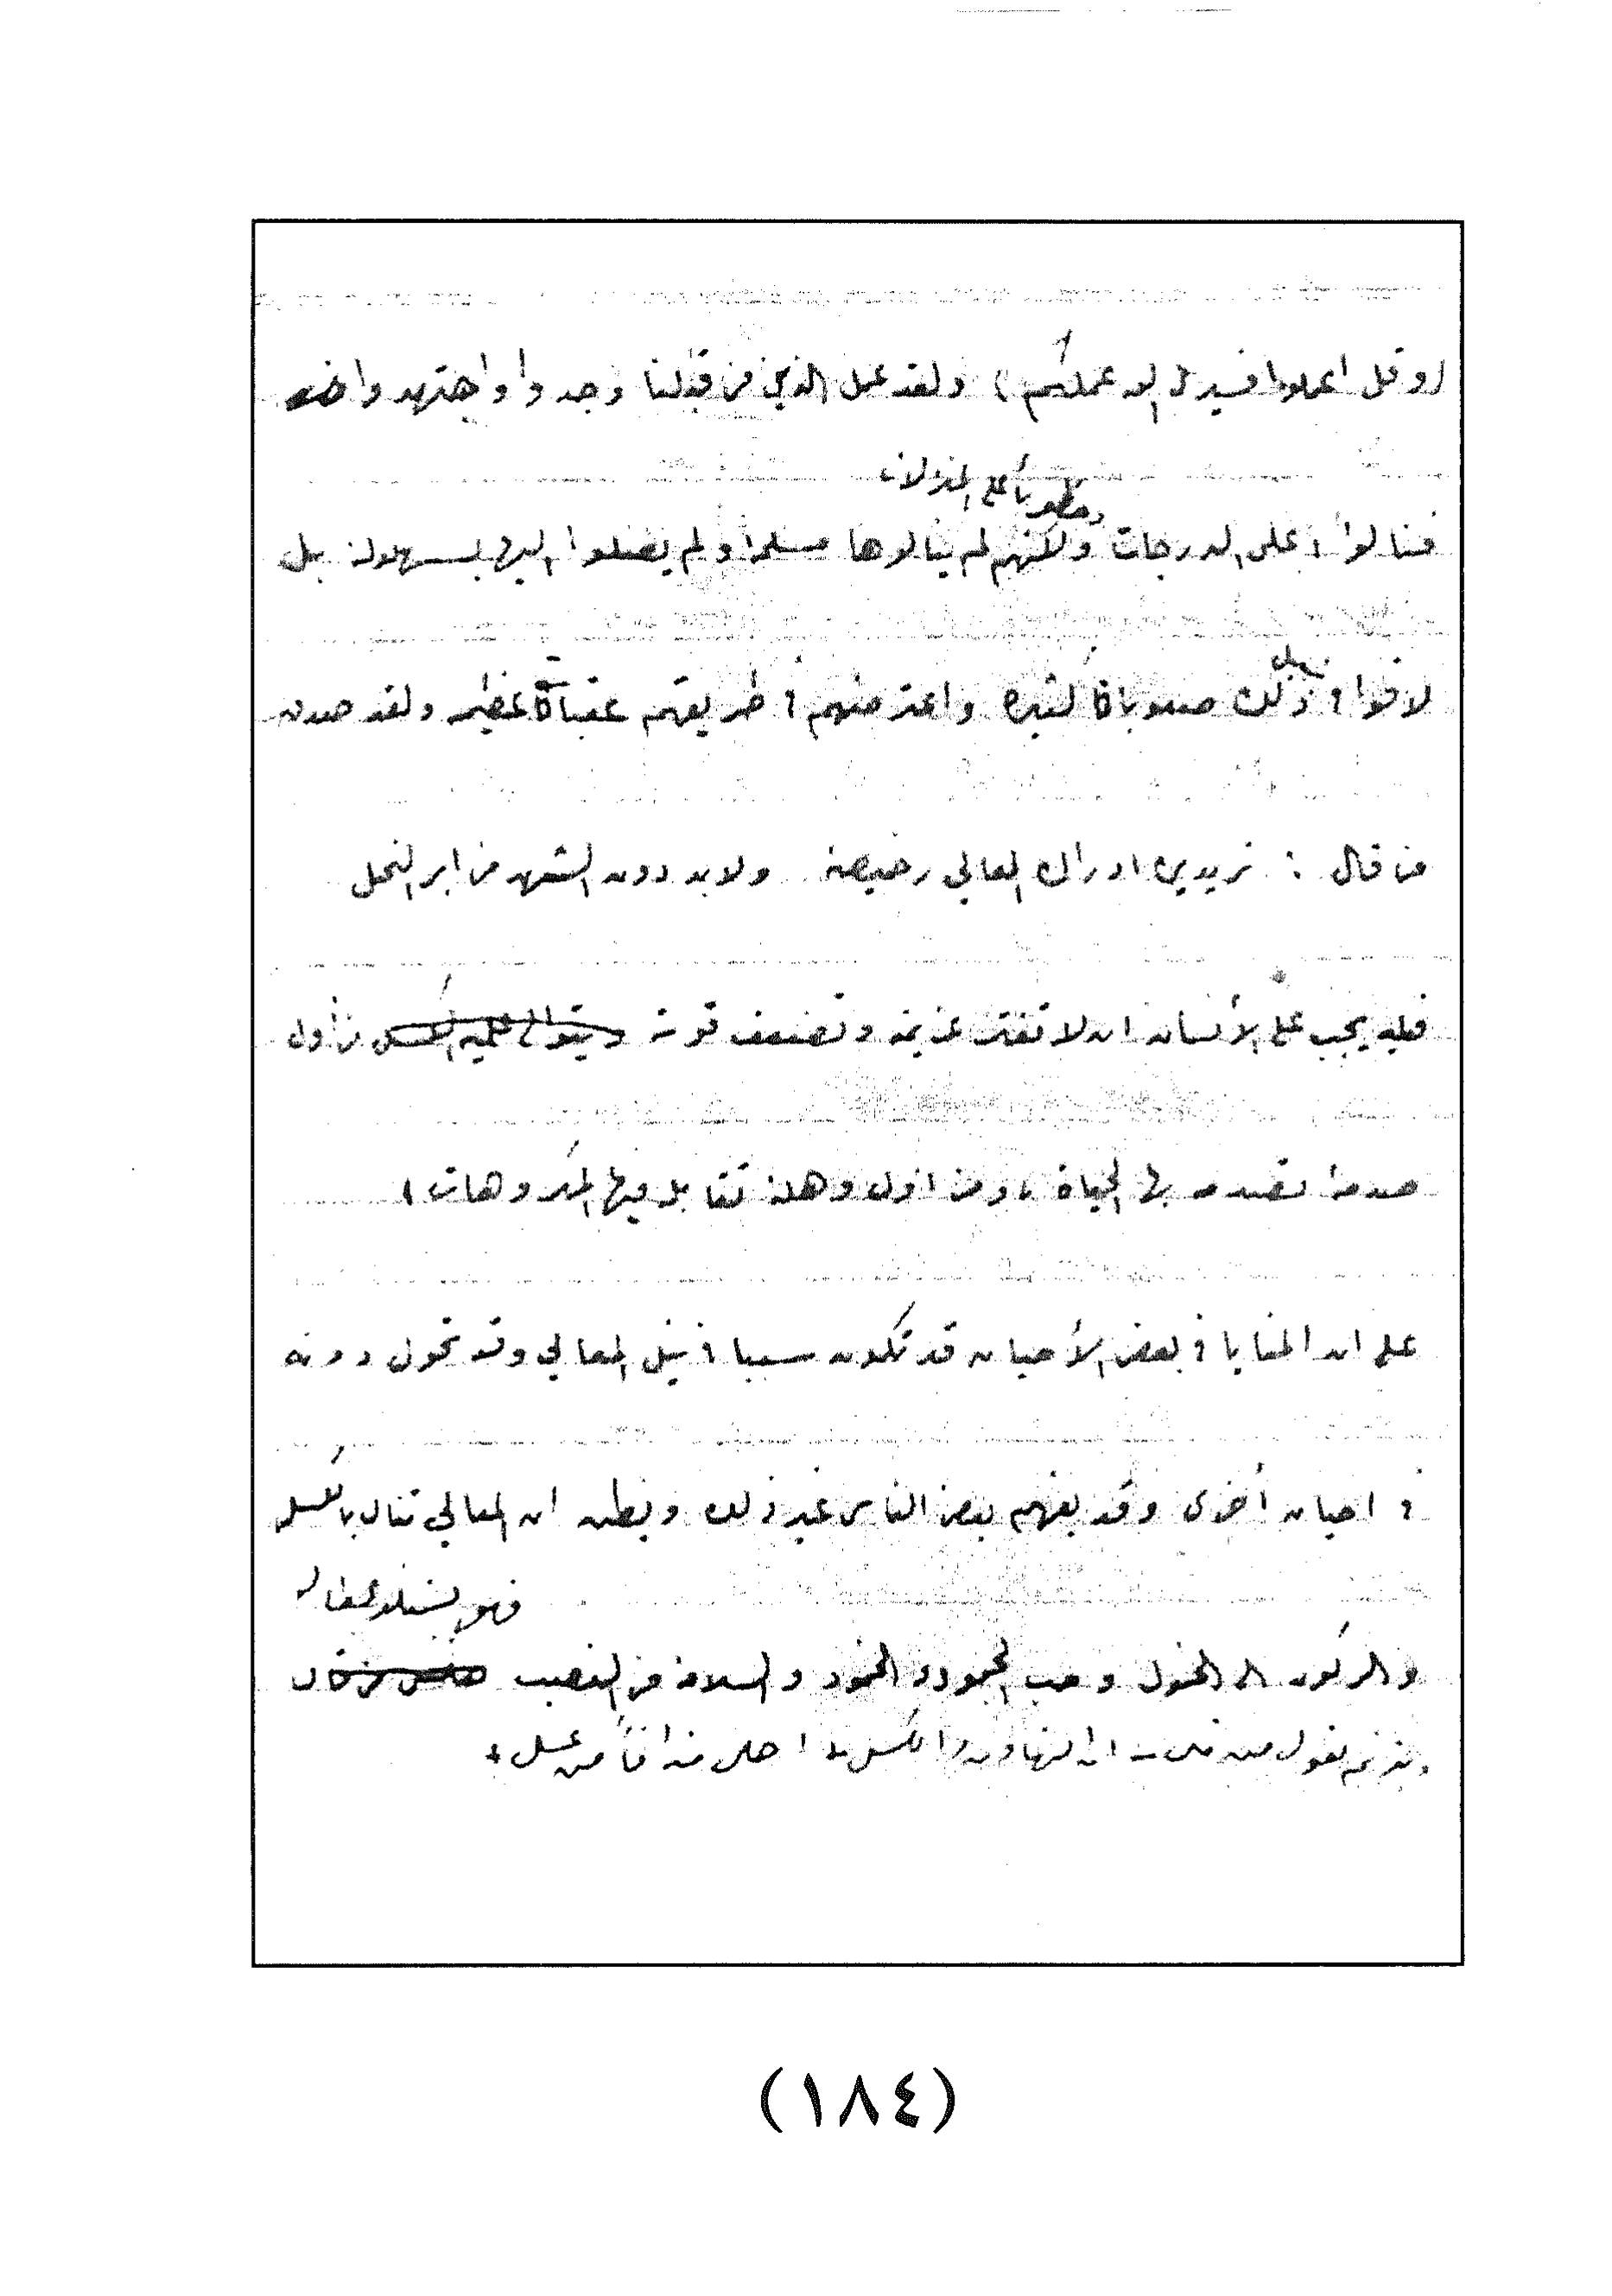 (وقل اعملوا فسيرى الله عملكم) ولقد عمل الذين من قبلنا وجدوا واجتهدوا
وحظوا بأعلى المنزلات
فنالوا أعلى الدرجات ولكنهم لم ينالوها ولم يصلوا اليها بسهولة بل
سبيل
لاقوا في ذلك صعوبات كثيرة واعترضتهم في طريقهم عقبات عظيمة ولقد صدق
من قال : تريدين ادراك المعالي رخيصة ولابد دون الشهد من ابر النحل
فعليه يجب على الأنسان ان لا تفتر عزيمته وتضعف قوته من أول
صدمة تصدمه بها الحياة ، ومن اول وهلة تقابله فيها المكروهات ،
على ان المنايا في بعض الأحيان قد تكون سببا في نيل المعالي وقد تحول دونه
في احيان أخرى وقد يفهم بعض الناس غير ذلك ويظن ان المعالي تنال بالكسل
فهو
والركون الى الخمول وحب الجمود والخمود والسلامة من النصب
يقول من ان التهاون والكسل احلى مذاقاً من عسل
(١٨٤)